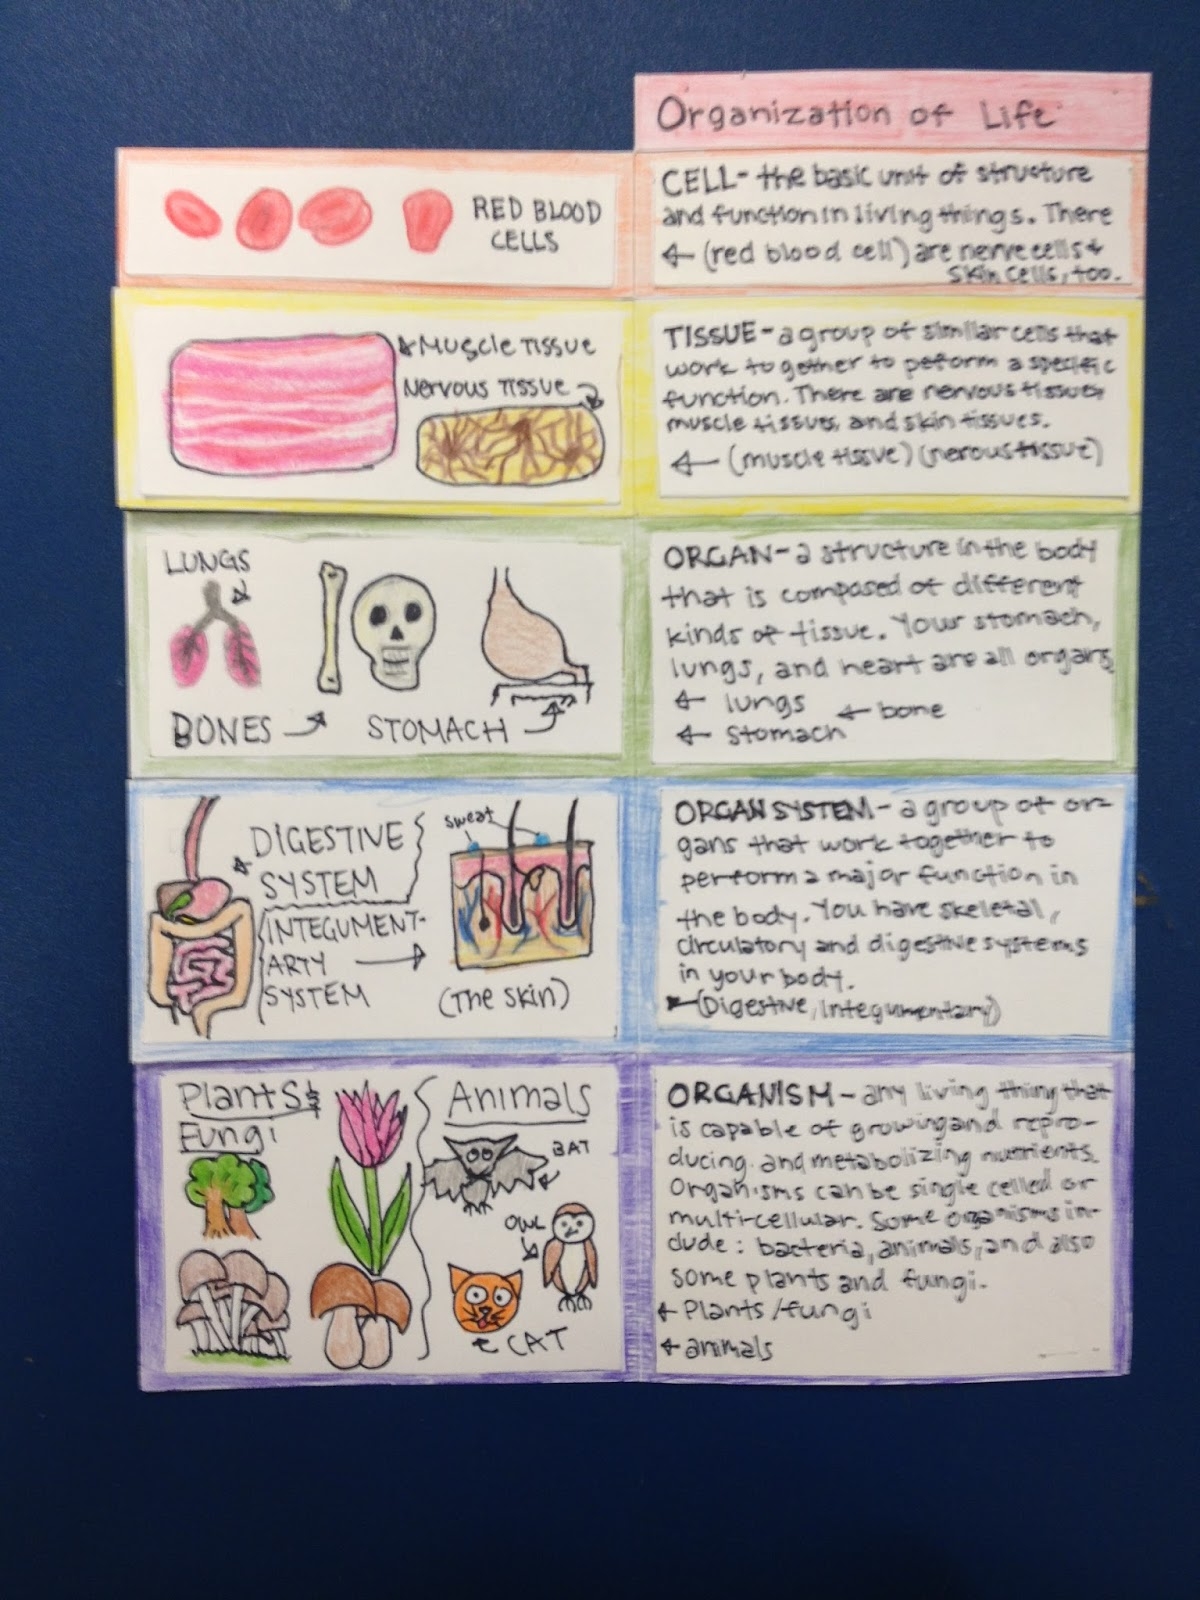 Organization of Life
RED BLOOD
CELLS
CELL- the basic unit of structure
and function in living things. There
← (red blood cell) are nerve cells &
skin cells, too.
Muscle Tissue
Nervous Tissue
TISSUE - a group of similar cells that
work to gether to peform a specific
function. There are nervous tissues,
muscle tissues, and skin tissues.
← (muscle tissue) (nerous tissue)
LUNGS
BONES →
STOMACH
ORGAN- a structure in the body
that is composed of different
kinds of tissue. Your stomach,
lungs, and heart are all organs.
← lungs
← bone
← Stomach
DIGESTIVE
SYSTEM
INTEGUMENT-
ARTY →
SYSTEM
sweat
(The Skin)
ORGAN SYSTEM - a group of or-
gans that work together to
perform a major function in
the body. You have skeletal,
circulatory and digestive systems
in your body.
← (Digestive, Integumentary)
Plants &
Fungi
Animals
BAT
OWL
← CAT
ORGANISM - any living thing that
is capable of growing and repro-
ducing. and metabolizing nutrients.
Organisms can be single celled or
multi-cellular. Some organisms in-
clude: bacteria, animals, and also
some plants and fungi.
← Plants/fungi
← animals